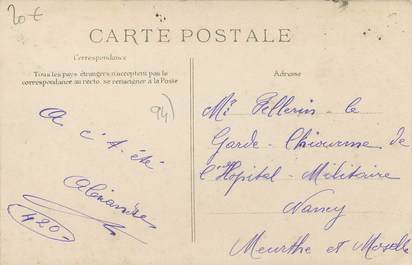 20€
CARTE POSTALE
Correspondance
Tous les pays étrangers n'acceptent pas le
correspondance au recto, se renseigner à la Poste
Adresse
94)
Mr Pellerin le
Garde-Chiourme de
l'Hopital-Militaire
Nancy
Meurthe et Moselle
A
c't'été
420